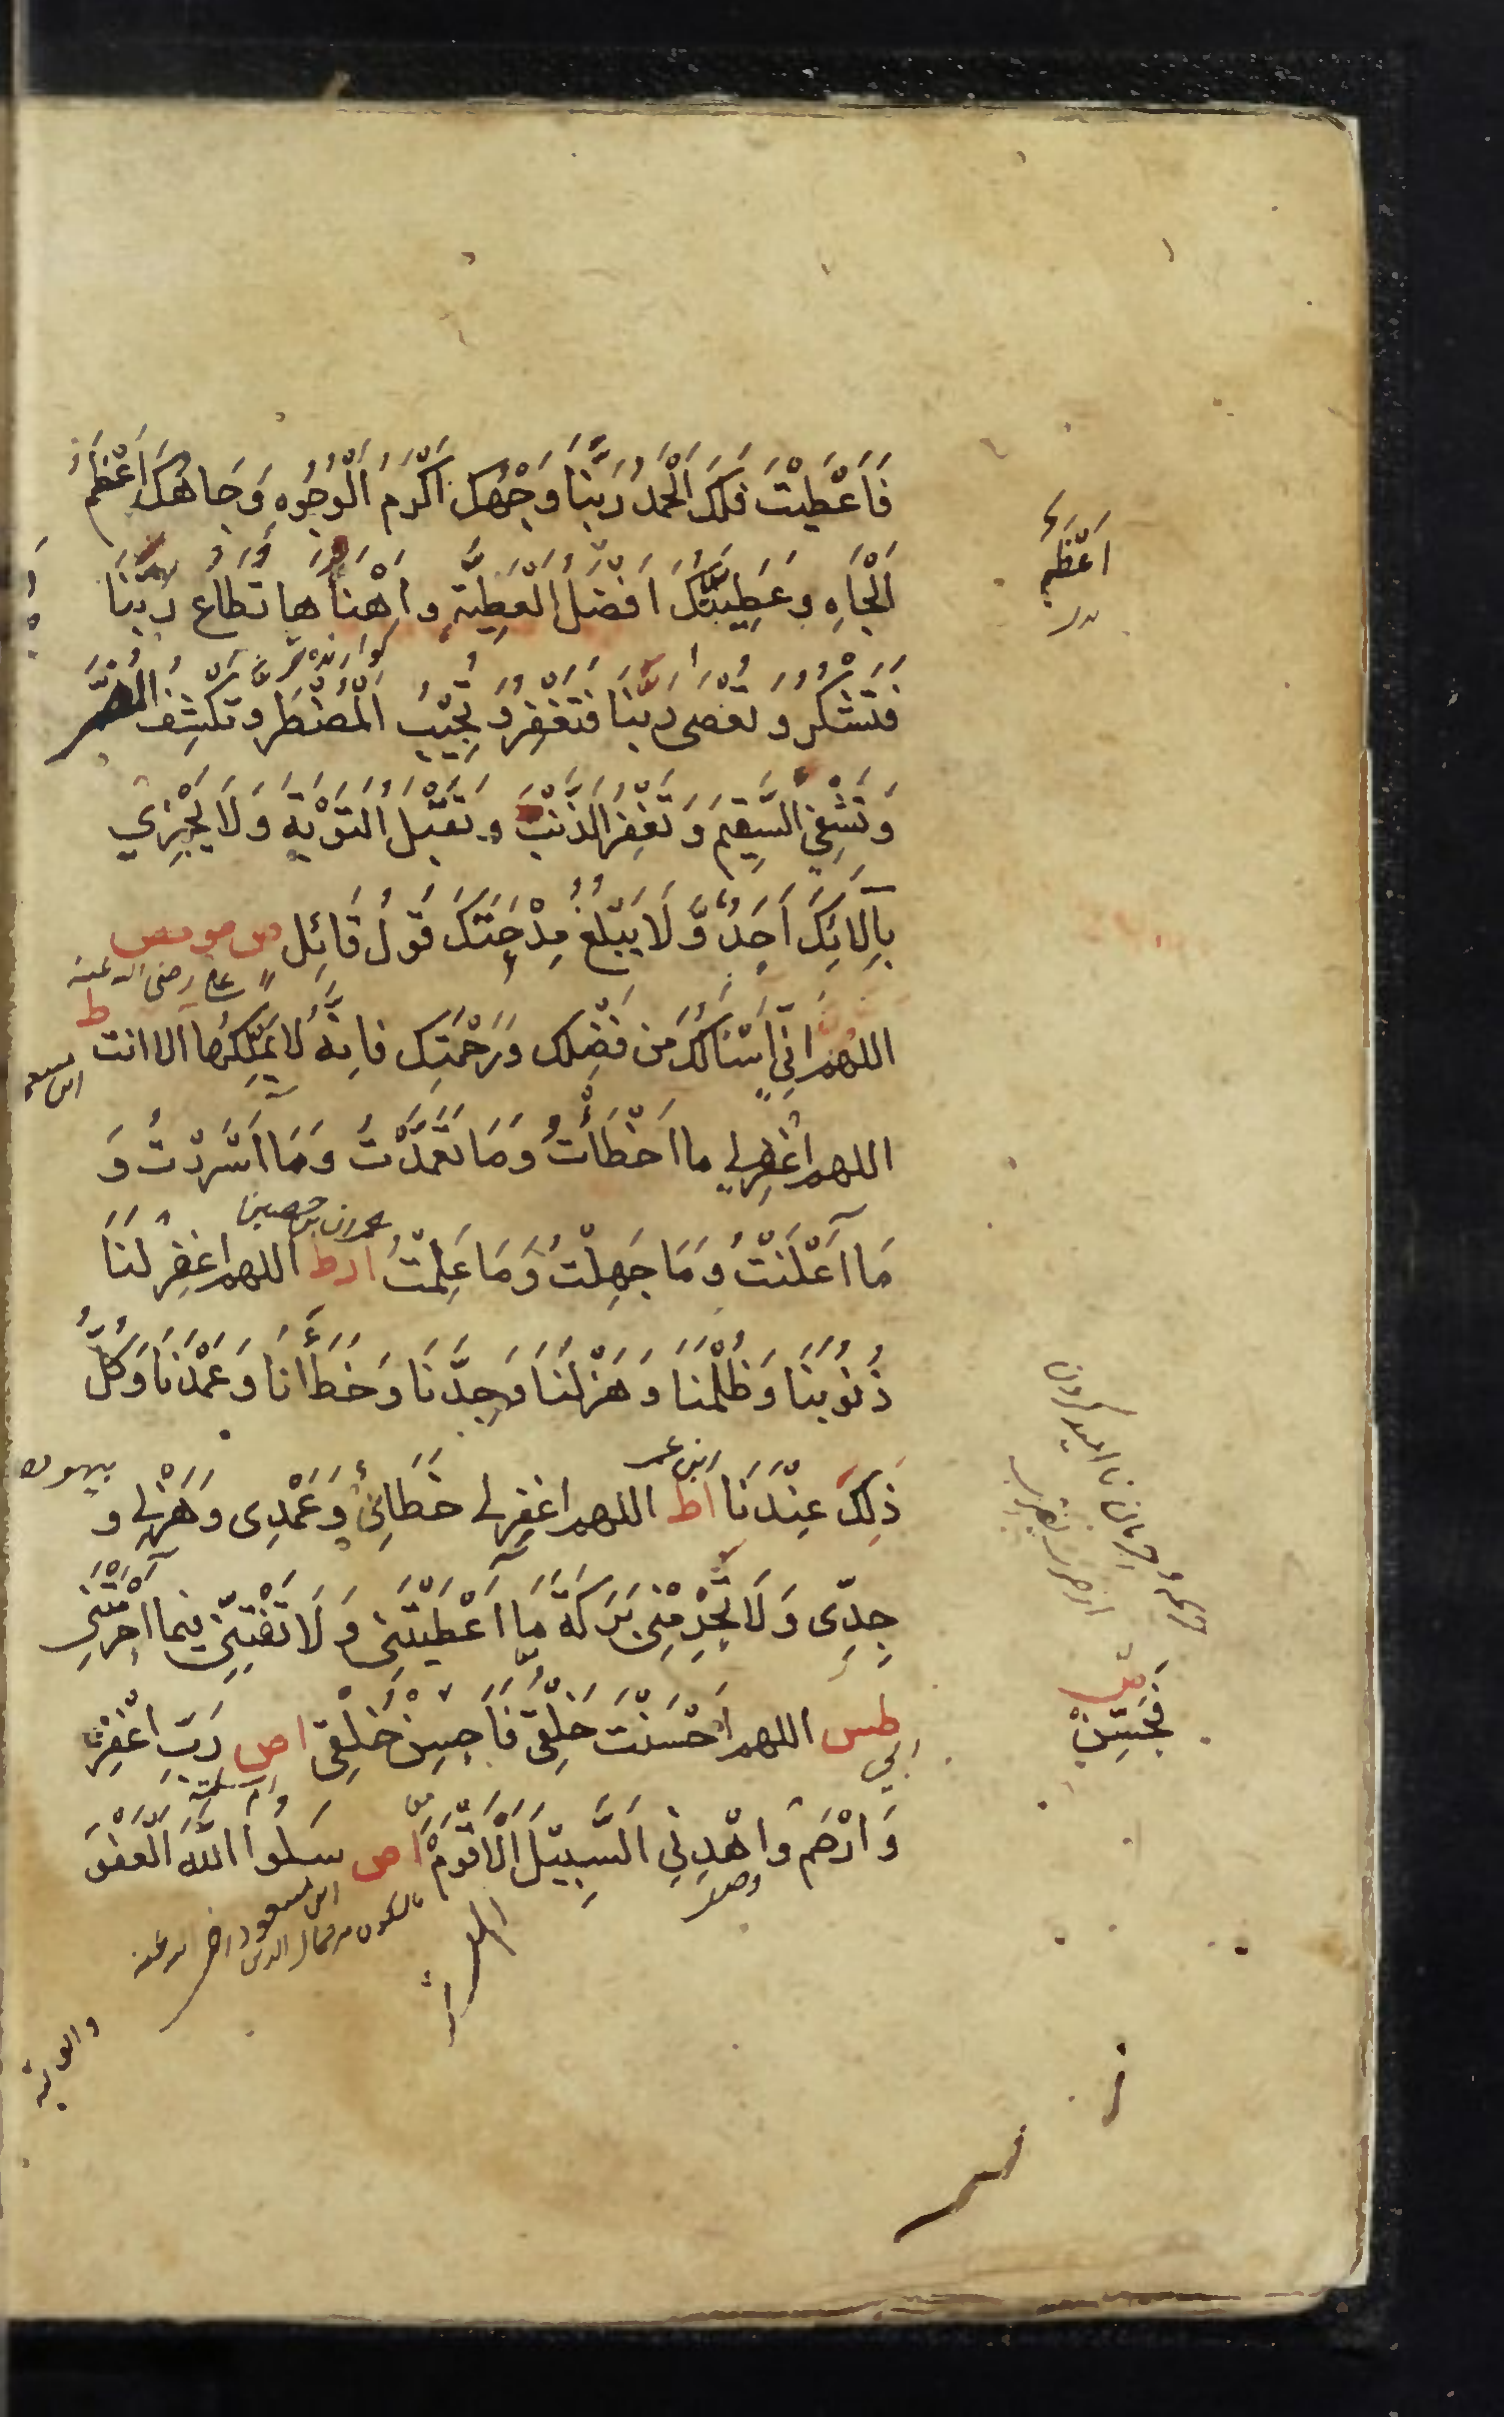 فَاَعْطَيْتَ فَلَكَ الْحَمْدُ رَبَّنَا وَجْهُكَ اَكْرَمُ الْوُجُوْهِ وَجَاهُكَ اَعْظَمُ
اَعْظَمُ
الْجَاهِ وَعَطِيَّتُكَ اَفْضَلُ الْعَطِيَّةِ وَاَهْنَأُهَا تُطَاعُ رَبَّنَا
فَتَشْكُرُ وَتُعْصٰى رَبَّنَا فَتَغْفِرُ وَتُجِيْبُ الْمُضْطَرَّ وَتَكْشِفُ الضُّرَّ
وَتَشْفِي السَّقِيْمَ وَتَغْفِرُ الذَّنْبَ وَتَقْبَلُ التَّوْبَةَ وَلَا يَجْزِيْ
بِآلَائِكَ اَحَدٌ وَّلَا يَبْلُغُ مِدْحَتَكَ قَوْلُ قَائِلٍ مص مو مص
رضى الله عنه
اللهم اِنِّيْ اَسْئَالُكَ مِنْ فَضْلِكَ وَرَحْمَتِكَ فَاِنَّهُ لَا يَمْلِكُهَا اِلا انت ط
ابن مسعود
اللهم اغْفِرْ لِي ما اَخْطَأْتُ وَمَا تَعَمَّدْتُ وَمَا اَسْرَرْتُ وَ
عمران بن حصين
مَا اَعْلَنْتُ وَمَا جَهِلْتُ وَمَا عَلِمْتُ ا ر ط اللهم اغْفِرْ لَنَا
ذُنُوْبَنَا وَظُلْمَنَا وَهَزْلَنَا وَجِدَّنَا وَخَطَأَنَا وَعَمْدَنَا وَكُلُّ
ابن عمر
ذٰلِكَ عِنْدَنَا ا ط اللهم اغفِر لى خَطَائِيْ وَعَمْدِى وَهَزْلِى وَ
جِدِّى وَلَا تَحْرِمْنِى بَرَكَةَ مَا اَعْطَيْتَنِى وَلَا تَفْتِنِّى فيما اَحْرَمْتَنِى
طس اللهم اَحْسَنْتَ خَلْقِى فَاَحْسِنْ خُلُقِى ا ص رَبِّ اغْفِرْ
اُبي
فَحَسِّنْ
ام سلمة
وَارْحَمْ وَاهْدِنِي السَّبِيْلَ الْاَقْوَمَ ا ص سَلُوا اللّٰهَ الْعَفْوَ
ابن مسعود
والعافية